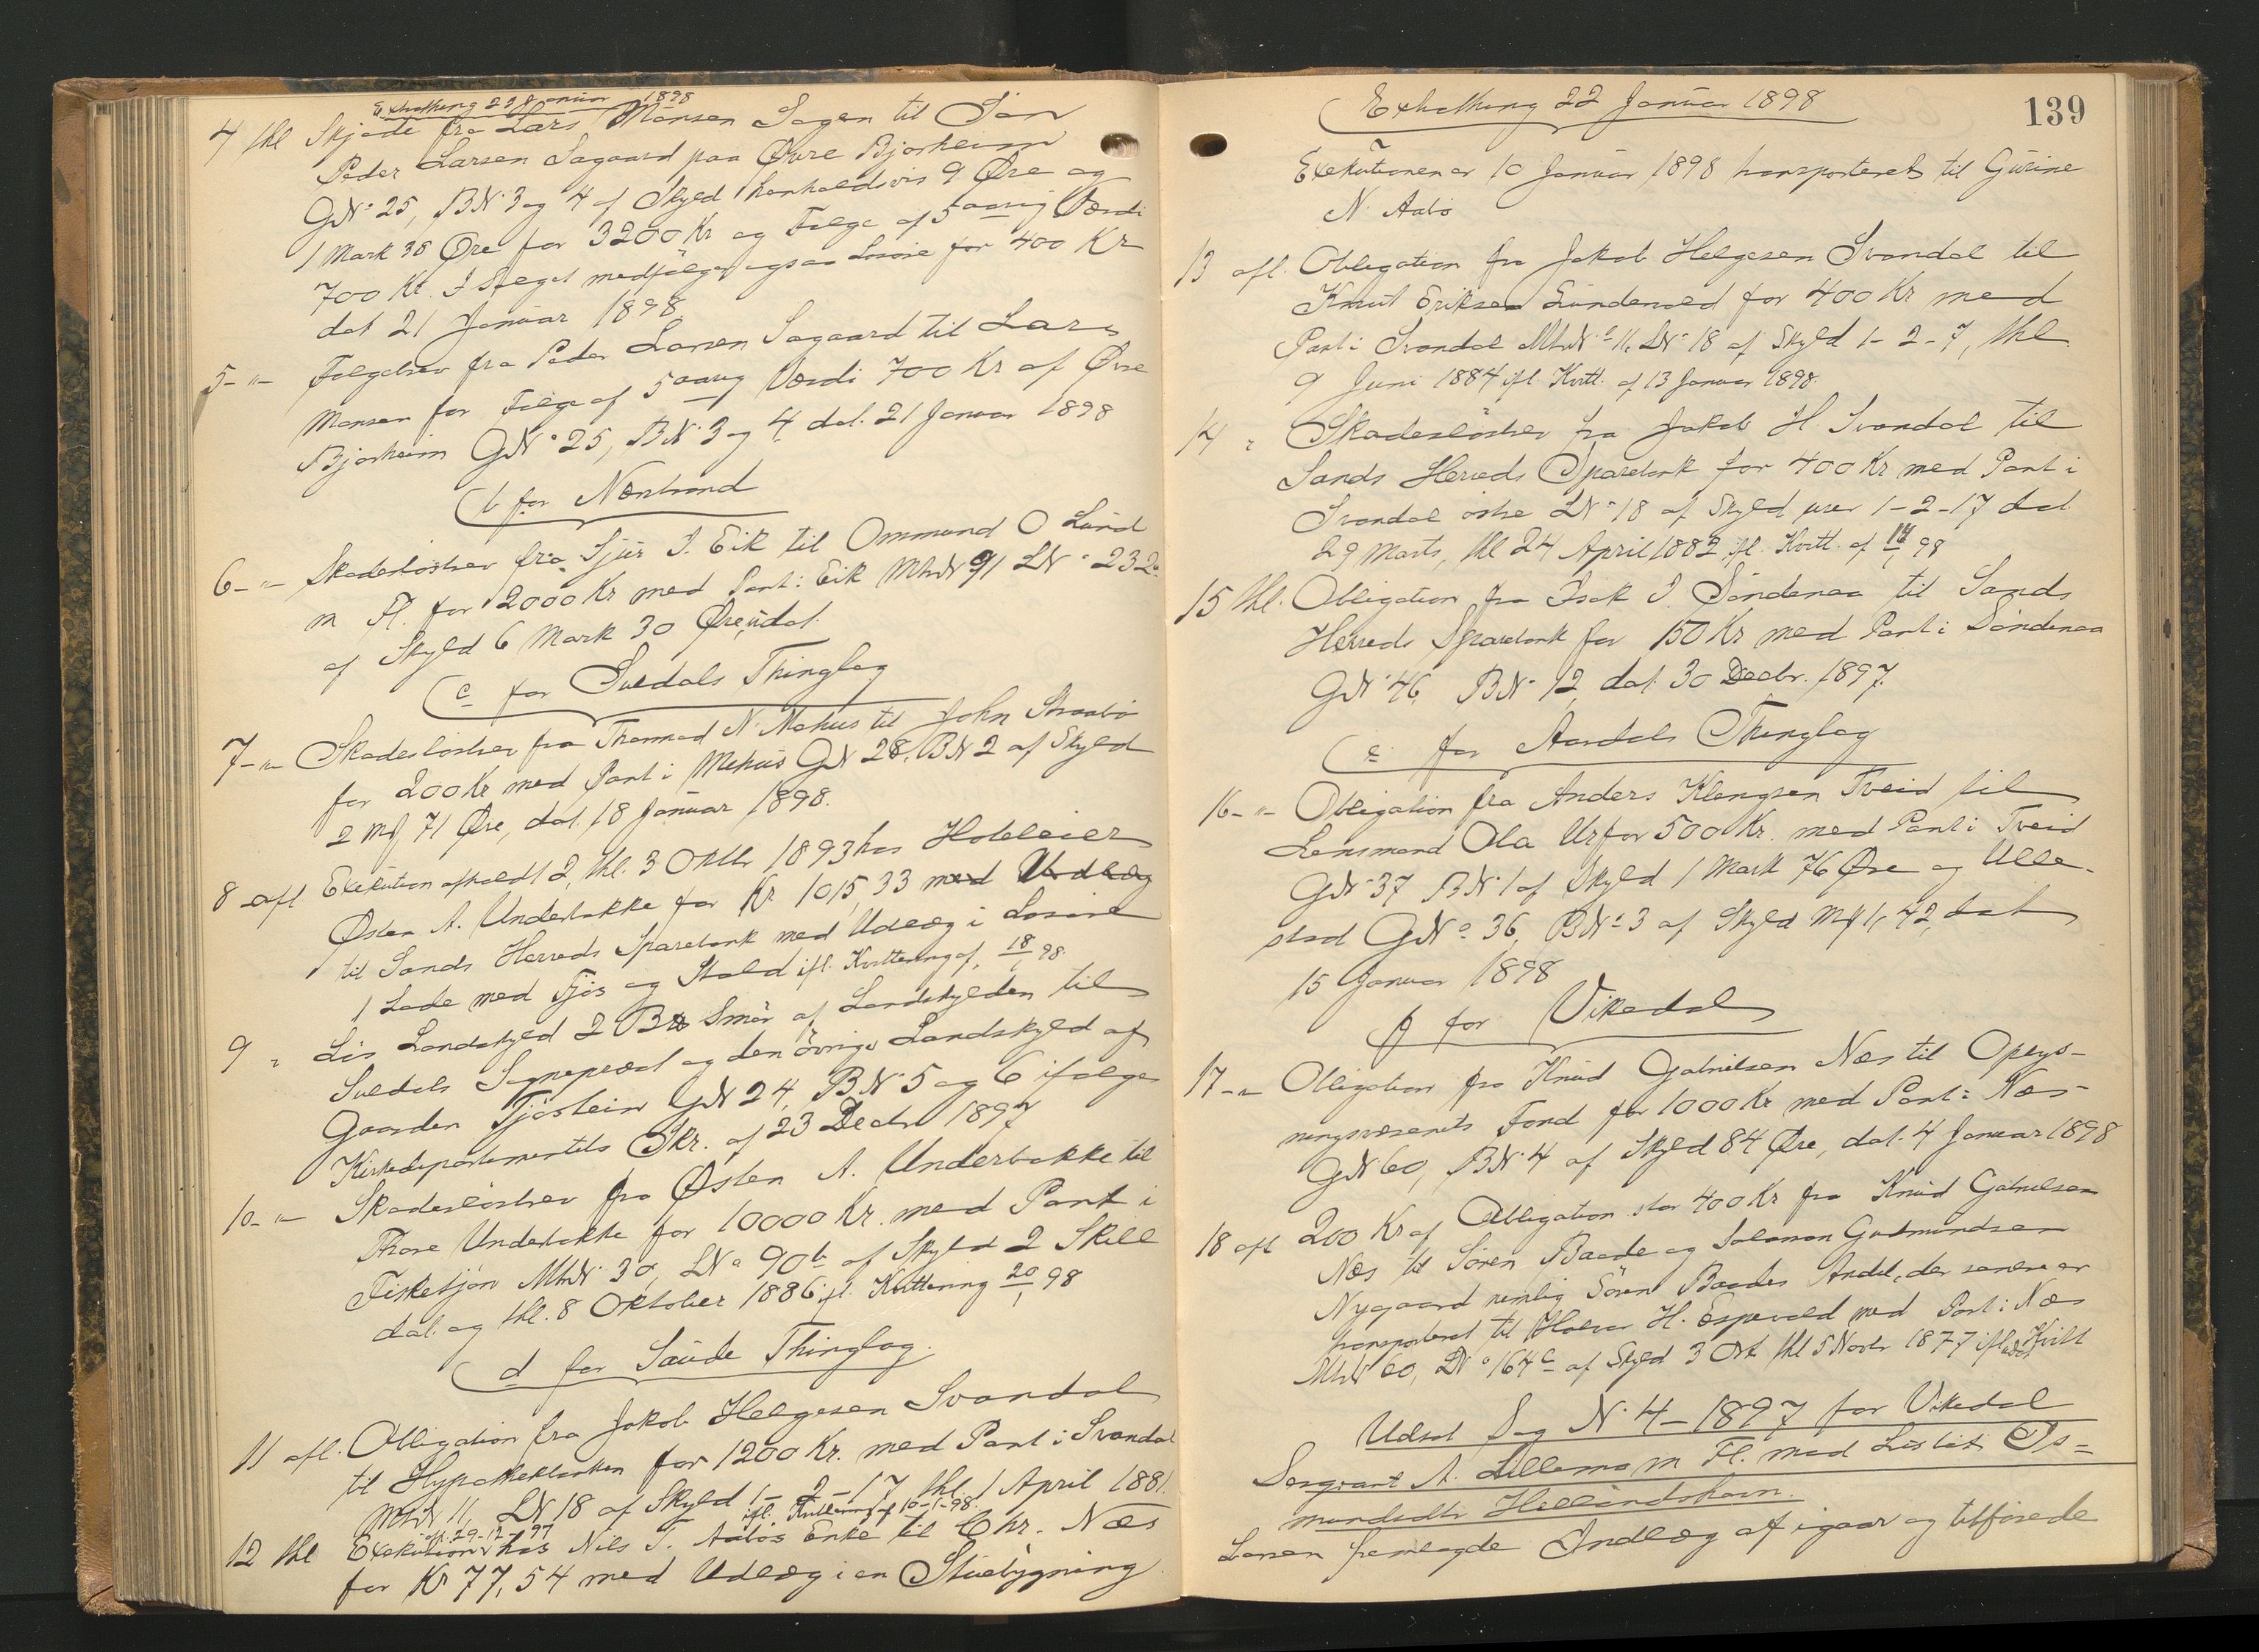 Extrathing 22 Januar 1898
4 thl Skjøde fra Lars Monsen Sagen til Søn
Peder Larsen Sagaard paa Øvre Bjorheim
GN° 25, BN° 3 og 4 af Skyld henholdsvis 9 Øre og
1 Mark 38 Øre for 3200 Kr og Følge af 5 aarig Værdi
700 Kr. I Kjøbet medfølger ogsaa Løsøre for 400 Kr
dat 21 Januar 1898
5 - " - Følgebrev fra Peder Larsen Sagaard til Lars
Monsen for Følge af 5 aarig Værdi 700 Kr af Øvre
Bjorheim GN° 25, BN° 3 og 4, dat. 21 Januar 1898
b for Nerstrand
6 - " - Skadesløsbrev fra Sjur I. Eik til Ommund O Lund
m Fl. for 2000 Kr med Pant i Eik MtrN 91 LN° 232a
af Skyld 6 Mark 30 Øre, udat.
c for Suldals Thinglag
7 - " - Skadesløsbrev fra Thormod N. Mehus til John Straabø
for 200 Kr med Pant i Mehus GN 28, BN 2 af Skyld
2 Mk 71 Øre, dat. 18 Januar 1898.
8 afl Exekution afholdt 2, thl. 3 Oktbr 1893 hos Hoteleier
Østen A. Underbakke for Kr 1015,33 med Udlæg
til Sands Herreds Sparebank med Udlæg i Løsøre
1 Lade med Fjøs og Stald ifl. Kvittering af 18/1 98.
9 " Løs Landskyld 2 B℔ Smør af Landskylden til
Suldals Sognepræst og den øvrige Landskyld af
Gaarden Tjøstein GN 24, BN° 5 og 6 ifølge
Kirkedepartementets Skr. af 23 Decbr 1897
10 - " - Skadesløsbrev fra Østen A. Underbakke til
Thore Underbakke for 10000 Kr. med Pant i
Fisketjøn MtrN° 30, LN° 90b af Skyld 2 Skill
dat. og thl. 8 Oktober 1886 ifl. Kvittering 20/1 98
d for Saude Thinglag.
11 afl. Obligation fra Jakob Helgesen Svandal
til Hypothekbanken for 1200 Kr. med Pant i Svandal
MtrN 11, LN 18 af Skyld 1 - 2 - 17 thl. 1 April 1881.
ifl. Kvittering af 10-1-98.
12 thl Exekution afh. 29-12-97 hos Nils T. Aabøs Enke til Chr. Næs
for Kr 77,54 med Udlæg i en Stuebygning.
139
Extrathing 22 Januar 1898
Exekutionen er 10 Januar 1898 transporteret til Gurine
N. Aabø
13 afl. Obligation fra Jakob Helgesen Svandal til
Knut Eriksen Lundevold for 400 Kr med
Pant i Svandal MtrN° 11, LN° 18 af Skyld 1 - 2 - 7, thl
9 Juni 1884 ifl. Kvitt. af 13 Januar 1898.
14 " Skadesløsbrev fra Jakob H. Svandal til
Sands Herreds Sparebank for 400 Kr med Pant i
Svandal østre LN° 18 af Skyld urev 1 - 2 - 17 dat
29 Marts, thl 24 April 1882 ifl. Kvitt. af 14/1 98
15 thl. Obligation fra Isak I. Søndenaa til Sands
Herreds Sparebank for 150 Kr med Pant i Søndenaa
GN° 46, BN° 12, dat. 30 Decbr. 1897.
e for Aardals Thinglag
16 - " - Obligation fra Anders Klengsen Tveid til
Lensmand Ola Ur for 500 Kr. med Pant i Tveid
GN° 37 BN° 1 af Skyld 1 Mark 76 Øre og Ulle-
stad GN° 36, BN° 3 af Skyld Mk 1,42, dat
15 Januar 1898
f for Vikedal
17 - " - Obligation fra Knud Gabrielsen Næs til Oplys-
ningsvæsenets Fond for 1000 Kr med Pant i Næs
GN 60, BN° 4 af Skyld 84 Øre, dat. 4 Januar 1898
18 afl 200 Kr af Obligation stor 400 Kr fra Knud Gabrielsen
Næs til Søren Baade og Salamon Gudmundsen
Nygaard nemlig Søren Baades Andel, der senere er
transporteret til Halvor H. Espevold med Pant i Næs
MtrN 60, LN° 164c af Skyld 3 Ort thl 5 Novbr 1877 ifl. Kvitt
Udsat Sag N° 4 - 1897 for Vikedal
Sergeant A. Lillemo m Fl. mod Lisbet Os=
mundsdtr Hellandshavn.
Larsen fremlagde Indlæg af igaar og tilførede